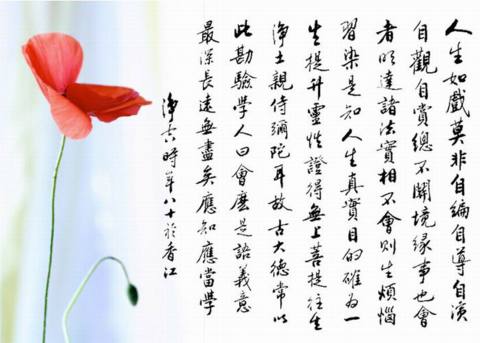 人生如戲莫非自編自導自演
自觀自賞總不開境緣事也會
者明達諸法實相不會則生煩惱
習染是知人生真實目的確為一
生提升靈性證得無上菩提往生
淨土親侍彌陀耳故古大德常以
此勘驗學人曰會麼是語義意
最深長遠無盡矣應知應當學
淨空時年八十於香江